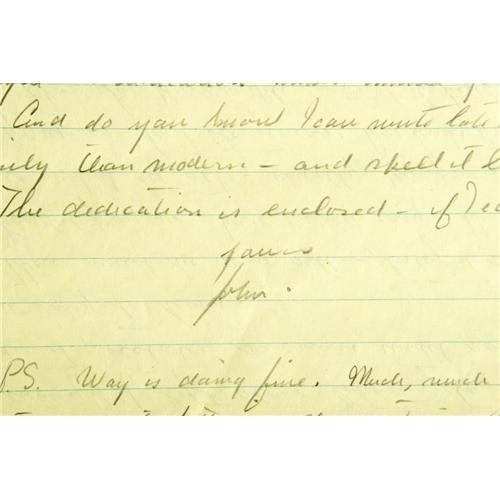 And do you know I can write late
ily than modern – and spell it
The dedication is enclosed – if I
yours
John.
P.S. Way is doing fine. Much, much